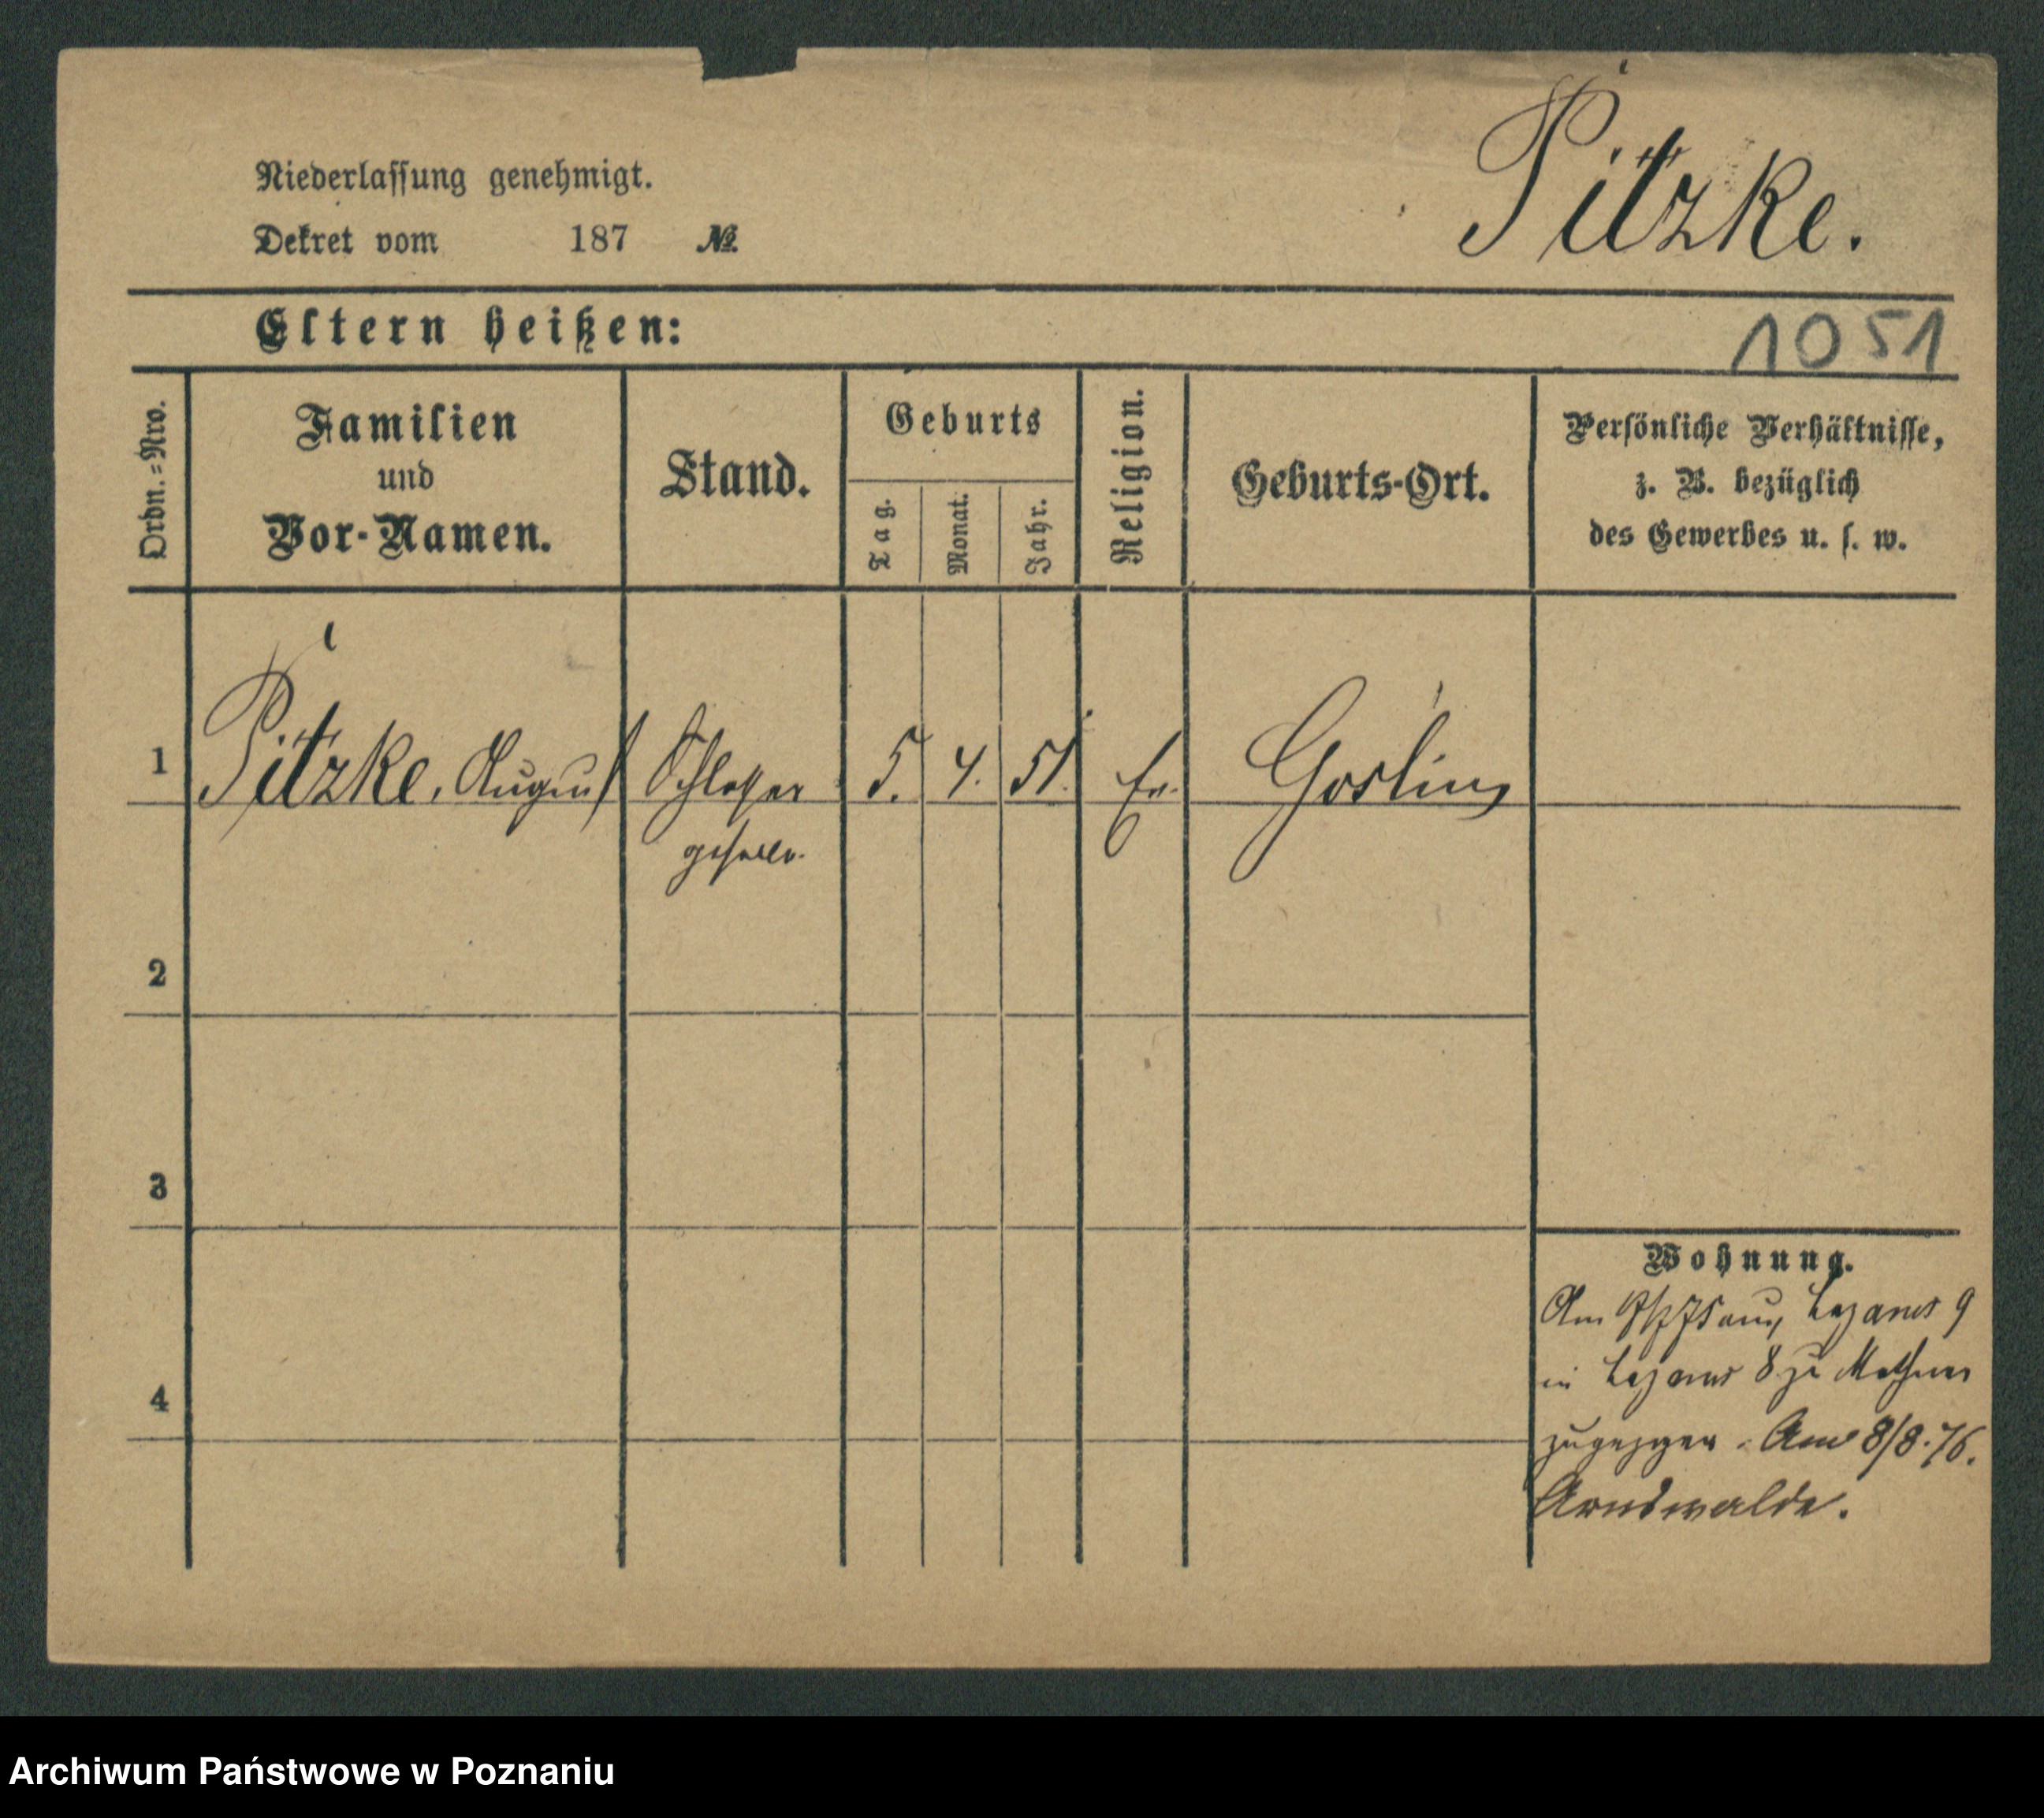 Niederlassung genehmigt.
Dekret vom 187 №
Pitzke.
Eltern heißen:
1051
Ordn.=Nro.
Familien
und
Vor-Namen.
Stand.
Geburts
Tag.
Monat.
Jahr.
Religion.
Geburts-Ort.
Persönliche Verhältnisse,
z. B. bezüglich
des Gewerbes u. s. w.
1 Pitzke, August Schlosser 5. 4. 51. Ev. Goslin
2
3
4
Wohnung.
Am Lazarus 9
in Lazarus 8 zu
zugezogen. Am 8/8.76.
Arnswalde.
Archiwum Państwowe w Poznaniu